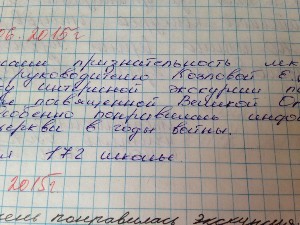 06. 2015г
признательность лек
руководителю Козловой Е.
интересной экскурсии по
посвященной Великой От
особенно понравилась инфор
церкви в годы войны.
172 школы
2015г.
понравилась экскурсия